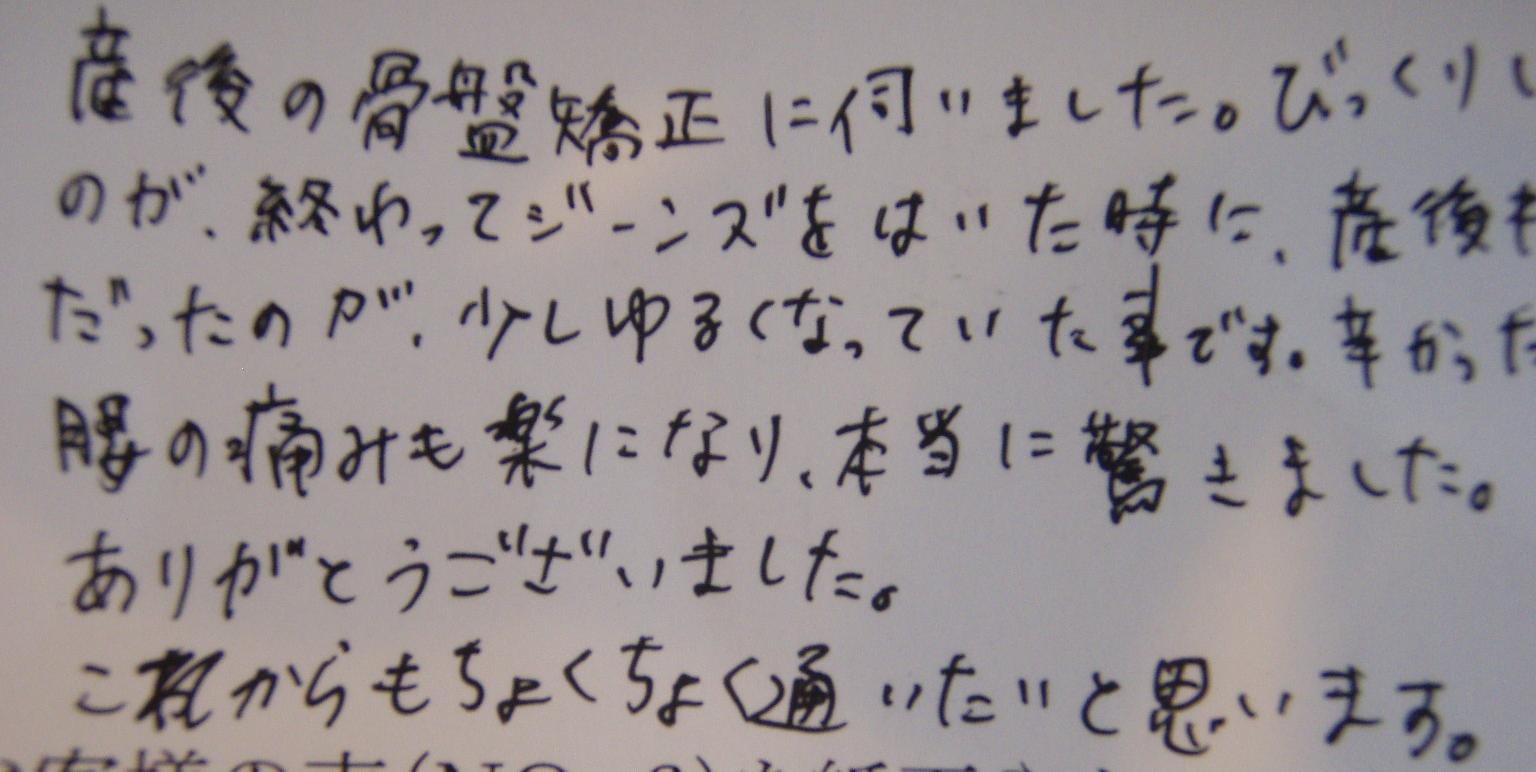 産後の骨盤矯正に伺いました。びっくりし
のが、終わってジーンズをはいた時に、産後
だったのが、少しゆるくなっていた事です。辛かった
腰の痛みも楽になり、本当に驚きました。
ありがとうございました。
これからもちょくちょく通いたいと思います。